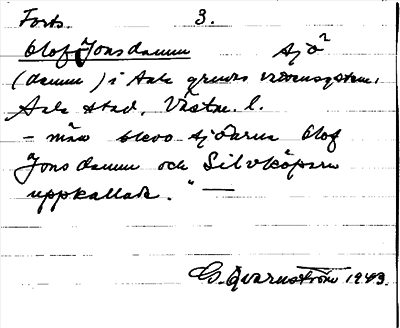 Forts. 3.
Olof Jonsdamm sjö²
(damm) i Sala gruvas vattensystem.
Sala stad, Västm. l.
– män blevo sjöarna Olof
Jons damm och Silvköparn
uppkallade." —
G. Qvarnström 1943.